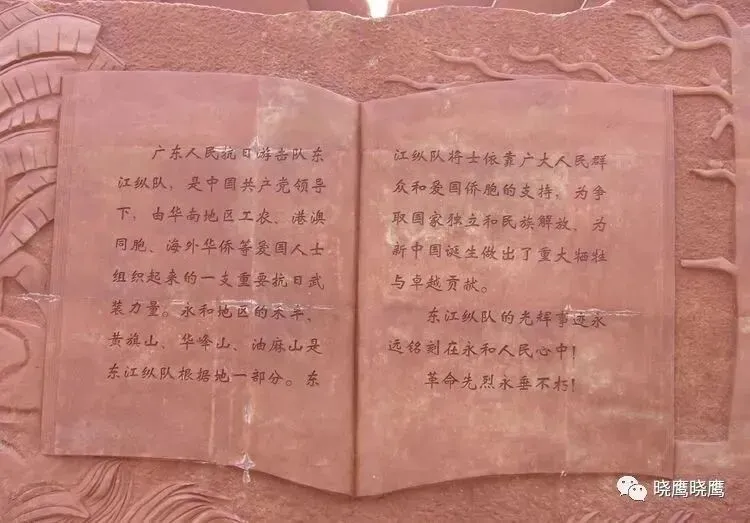 广东人民抗日游击队东
江纵队，是中国共产党领导
下，由华南地区工农、港澳
同胞、海外华侨等爱国人士
组织起来的一支重要抗日武
装力量。永和地区的禾丰、
黄旗山、华峰山、油麻山是
东江纵队根据地一部分。东
江纵队将士依靠广大人民群
众和爱国侨胞的支持，为争
取国家独立和民族解放、为
新中国诞生做出了重大牺牲
与卓越贡献。
东江纵队的光辉事迹永
远铭刻在永和人民心中！
革命先烈永垂不朽！
晓鹰晓鹰